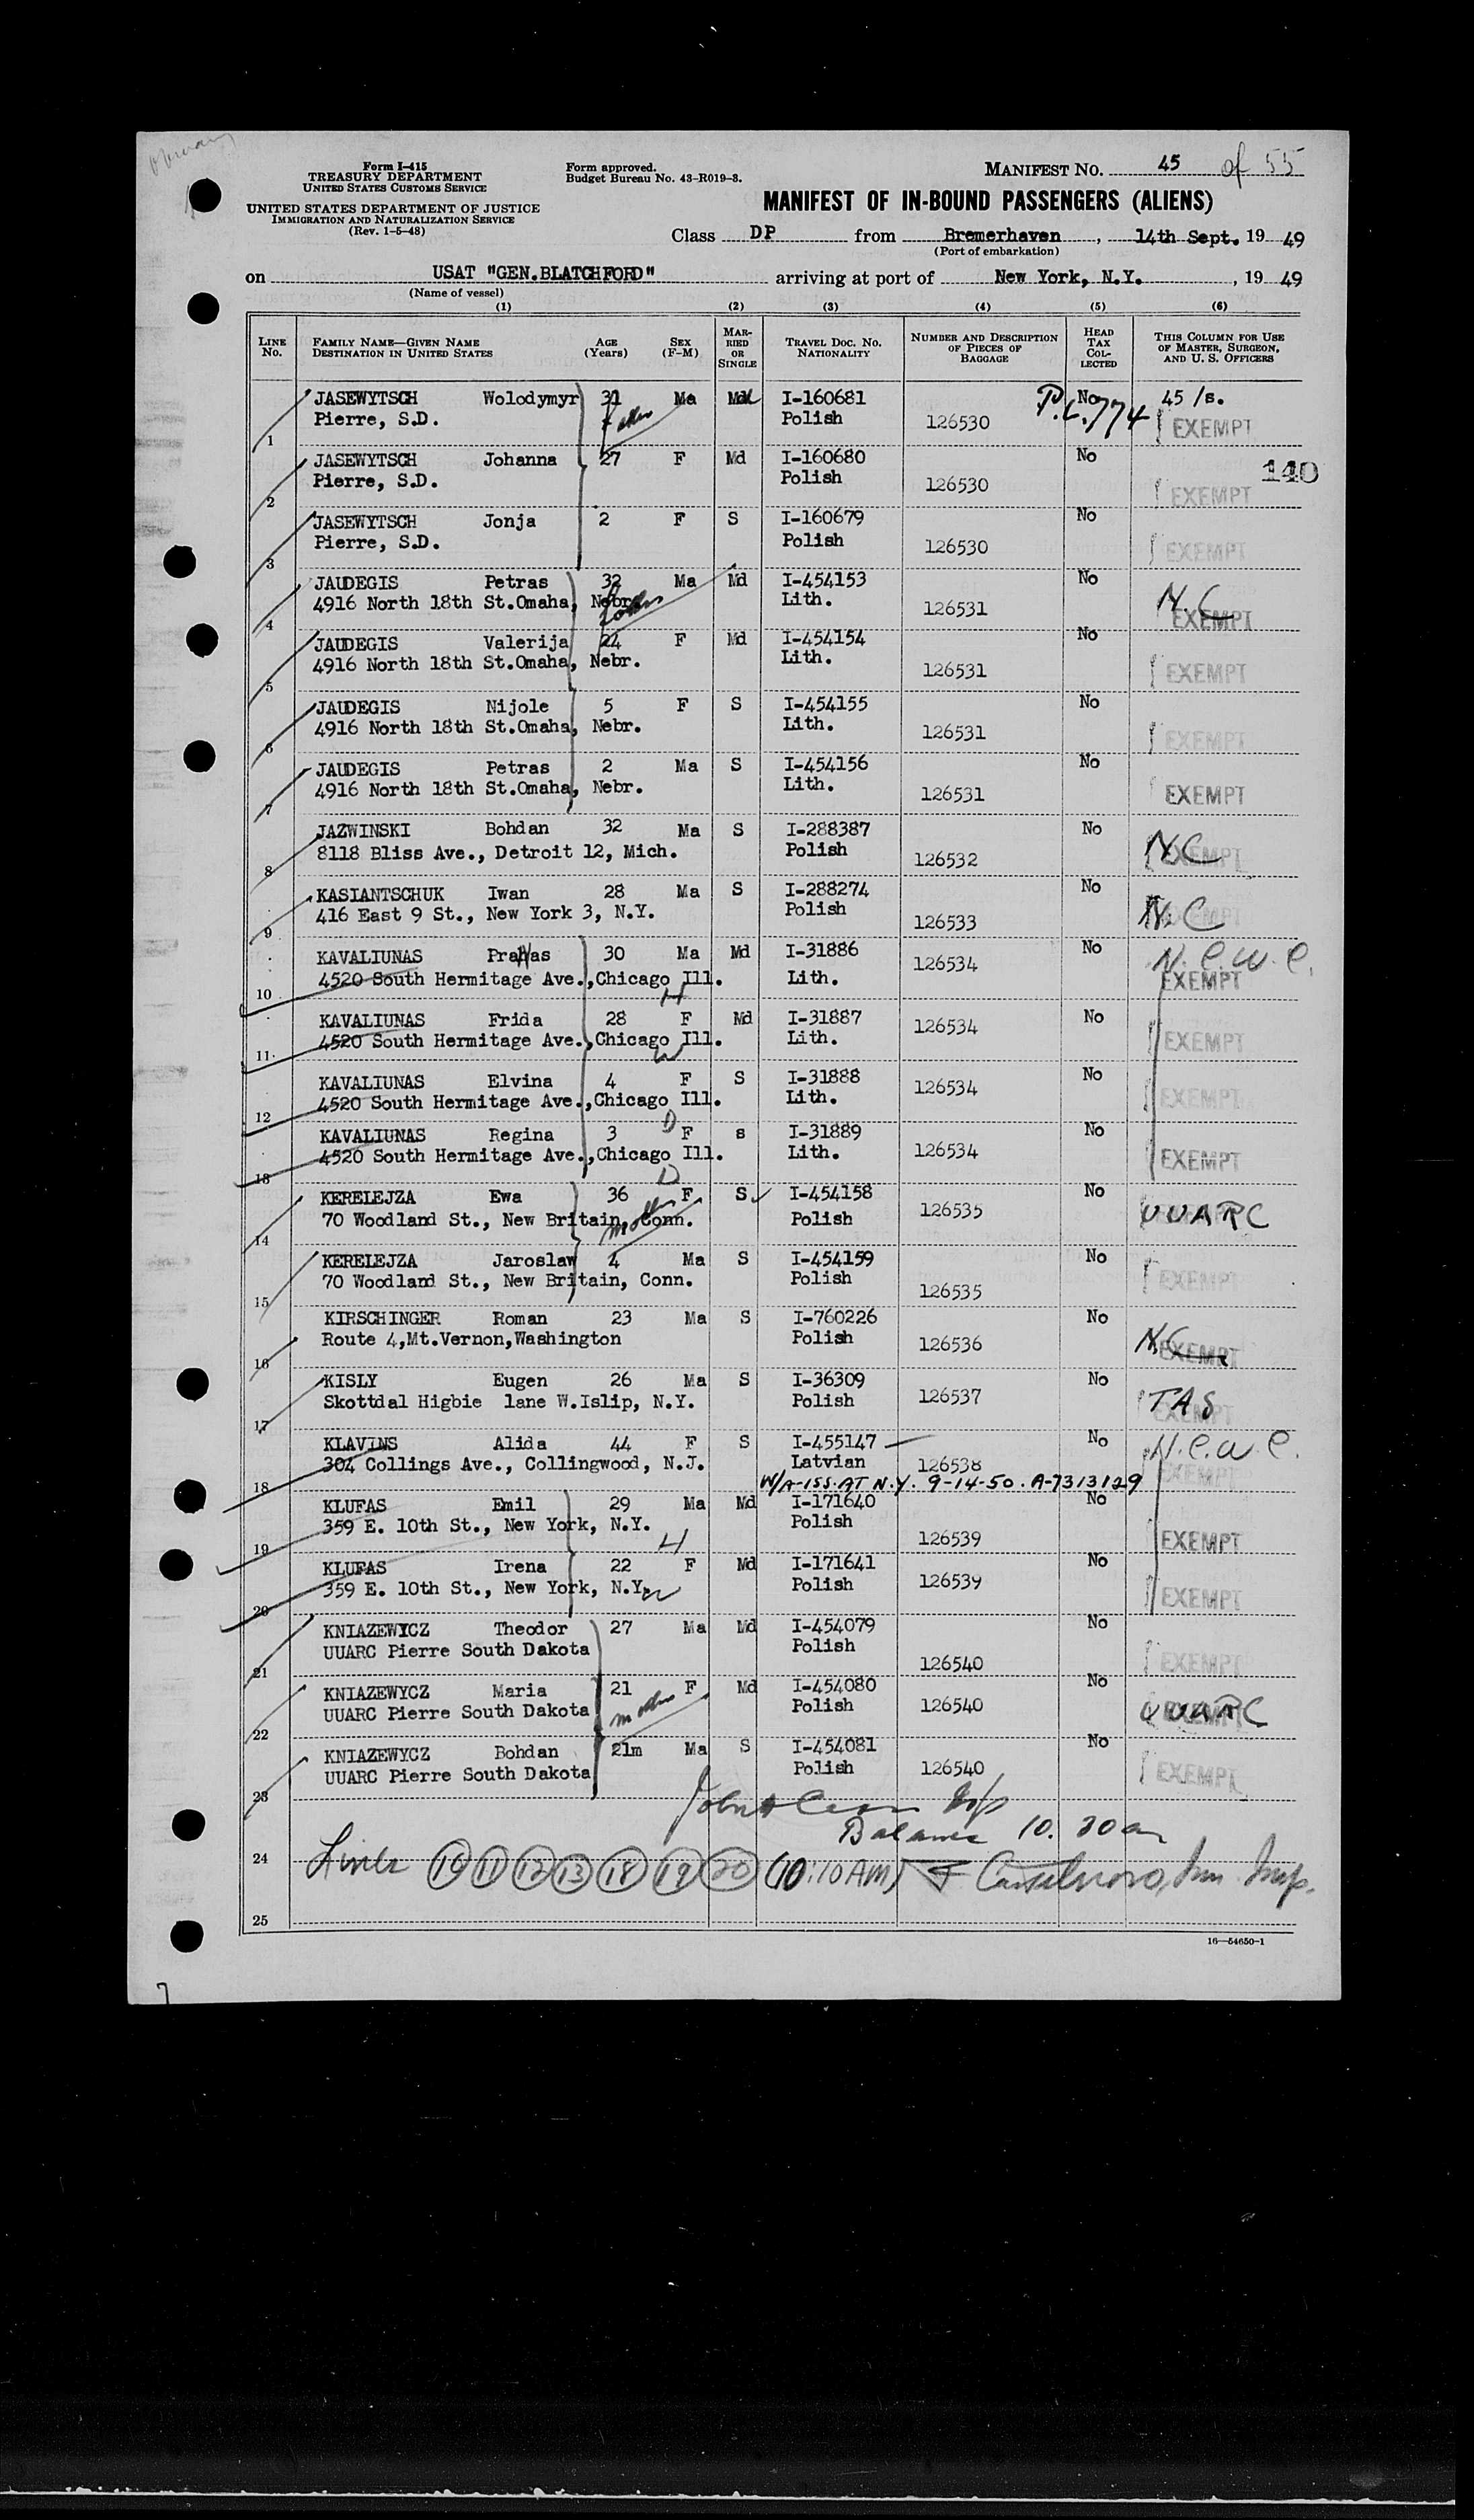 Form I-415
TREASURY DEPARTMENT
UNITED STATES CUSTOMS SERVICE
UNITED STATES DEPARTMENT OF JUSTICE
IMMIGRATION AND NATURALIZATION SERVICE
(Rev. 1-5-48)
Form approved.
Budget Bureau No. 43-R019-3.
MANIFEST NO. 45 of 55
MANIFEST OF IN-BOUND PASSENGERS (ALIENS)
Class DP from Bremerhaven, 14th Sept. 19 49
(Port of embarkation)
on USAT "GEN.BLATCHFORD" arriving at port of New York, N.Y., 19 49
(Name of vessel)
(1) (2) (3) (4) (5) (6)
LINE NO. FAMILY NAME—GIVEN NAME DESTINATION IN UNITED STATES AGE (Years) SEX (F-M) MARRIED OR SINGLE TRAVEL DOC. NO. NATIONALITY NUMBER AND DESCRIPTION OF PIECES OF BAGGAGE HEAD TAX COLLECTED THIS COLUMN FOR USE OF MASTER, SURGEON, AND U. S. OFFICERS
JASEWYTSCH Wolodymyr 31 Ma Md I-160681 No 45 /s.
1 Pierre, S.D. Polish 126530 P.L.774 EXEMPT
JASEWYTSCH Johanna 27 F Md I-160680 No 140
2 Pierre, S.D. Polish 126530 EXEMPT
JASEWYTSCH Jonja 2 F S I-160679 No
3 Pierre, S.D. Polish 126530 EXEMPT
JAUDEGIS Petras 32 Ma Md I-454153 No N.C
4 4916 North 18th St.Omaha, Nebr. Lith. 126531 EXEMPT
JAUDEGIS Valerija 24 F Md I-454154 No
5 4916 North 18th St.Omaha, Nebr. Lith. 126531 EXEMPT
JAUDEGIS Nijole 5 F S I-454155 No
6 4916 North 18th St.Omaha, Nebr. Lith. 126531 EXEMPT
JAUDEGIS Petras 2 Ma S I-454156 No
7 4916 North 18th St.Omaha, Nebr. Lith. 126531 EXEMPT
JAZWINSKI Bohdan 32 Ma S I-288387 No NC
8 8118 Bliss Ave., Detroit 12, Mich. Polish 126532 EXEMPT
KASIANTSCHUK Iwan 28 Ma S I-288274 No N.C
9 416 East 9 St., New York 3, N.Y. Polish 126533 EXEMPT
KAVALIUNAS Pranas 30 Ma Md I-31886 126534 No N.C.W.C.
10 4520 South Hermitage Ave.,Chicago Ill. H Lith. EXEMPT
KAVALIUNAS Frida 28 F Md I-31887 126534 No
11 4520 South Hermitage Ave.,Chicago Ill. W Lith. EXEMPT
KAVALIUNAS Elvina 4 F S I-31888 126534 No
12 4520 South Hermitage Ave.,Chicago Ill. D Lith. EXEMPT
KAVALIUNAS Regina 3 F s I-31889 126534 No
13 4520 South Hermitage Ave.,Chicago Ill. D Lith. EXEMPT
KERELEJZA Ewa 36 F S I-454158 126535 No UUARC
14 70 Woodland St., New Britain, Conn. mother Polish
KERELEJZA Jaroslaw 4 Ma S I-454159 No
15 70 Woodland St., New Britain, Conn. Polish 126535 EXEMPT
KIRSCHINGER Roman 23 Ma S I-760226 No N.C
16 Route 4,Mt.Vernon,Washington Polish 126536 EXEMPT
KISLY Eugen 26 Ma S I-36309 126537 No TAS
17 Skottdal Higbie lane W.Islip, N.Y. Polish EXEMPT
KLAVINS Alida 44 F S I-455147 No N.C.W.C.
18 304 Collings Ave., Collingwood, N.J. Latvian 126538 EXEMPT
W/A-ISS.AT N.Y. 9-14-50. A-7313129
KLUFAS Emil 29 Ma Md I-171640 No
19 359 E. 10th St., New York, N.Y. H Polish 126539 EXEMPT
KLUFAS Irena 22 F Md I-171641 No
20 359 E. 10th St., New York, N.Y. W Polish 126539 EXEMPT
KNIAZEWYCZ Theodor 27 Ma Md I-454079 No
21 UUARC Pierre South Dakota Polish 126540 EXEMPT
KNIAZEWYCZ Maria 21 F Md I-454080 No
22 UUARC Pierre South Dakota mother Polish 126540 UUARC EXEMPT
KNIAZEWYCZ Bohdan 21m Ma S I-454081 No
23 UUARC Pierre South Dakota Polish 126540 EXEMPT
Balance 10.30am
24 Lines 10 11 12 13 18 19 20 (10:10AM) Imm. Insp.
25
16—54650-1